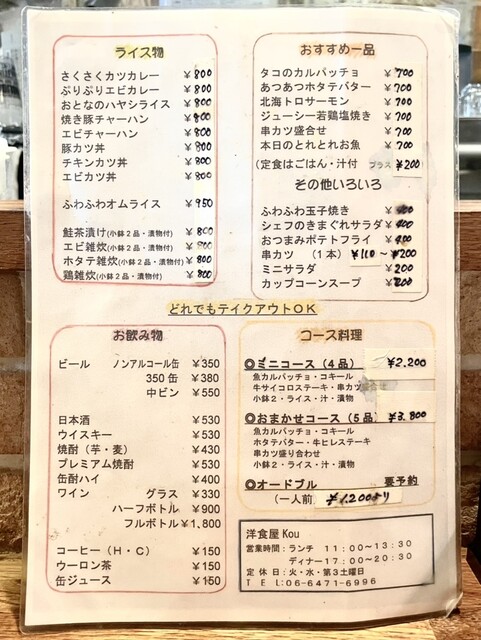 ライス物
さくさくカツカレー ￥800
ぷりぷりエビカレー ￥800
おとなのハヤシライス ￥800
焼き豚チャーハン ￥800
エビチャーハン ￥800
豚カツ丼 ￥800
チキンカツ丼 ￥800
エビカツ丼 ￥800
ふわふわオムライス ￥950
鮭茶漬け(小鉢2品・漬物付) ￥800
エビ雑炊(小鉢2品・漬物付) ￥800
ホタテ雑炊(小鉢2品・漬物付) ￥800
鶏雑炊(小鉢2品・漬物付) ￥800
おすすめ一品
タコのカルパッチョ ￥700
あつあつホタテバター ￥700
北海トロサーモン ￥700
ジューシー若鶏塩焼き ￥700
串カツ盛合せ ￥700
本日のとれとれお魚 ￥700
(定食はごはん・汁付 プラス ￥200)
その他いろいろ
ふわふわ玉子焼き ￥400
シェフのきまぐれサラダ ￥400
おつまみポテトフライ ￥400
串カツ (1本) ￥110～￥200
ミニサラダ ￥200
カップコーンスープ ￥200
どれでもテイクアウトOK
お飲み物
ビール ノンアルコール缶 ￥350
350缶 ￥380
中ビン ￥550
日本酒 ￥530
ウイスキー ￥530
焼酎(芋・麦) ￥430
プレミアム焼酎 ￥530
缶酎ハイ ￥400
ワイン グラス ￥330
ハーフボトル ￥900
フルボトル ￥1,800
コーヒー(H・C) ￥150
ウーロン茶 ￥150
缶ジュース ￥150
コース料理
◎ミニコース(4品) ￥2.200
魚カルパッチョ・コキール
牛サイコロステーキ・串カツ盛合せ
小鉢2・ライス・汁・漬物
◎おまかせコース(5品) ￥3.800
魚カルパッチョ・コキール
ホタテバター・牛ヒレステーキ
串カツ盛り合わせ
小鉢2・ライス・汁・漬物
◎オードブル 要予約
(一人前 ￥1.200より
洋食屋 Kou
営業時間:ランチ 11:00～13:30
ディナー17:00～20:30
定休日:火・水・第3土曜日
TEL:06-6471-6996